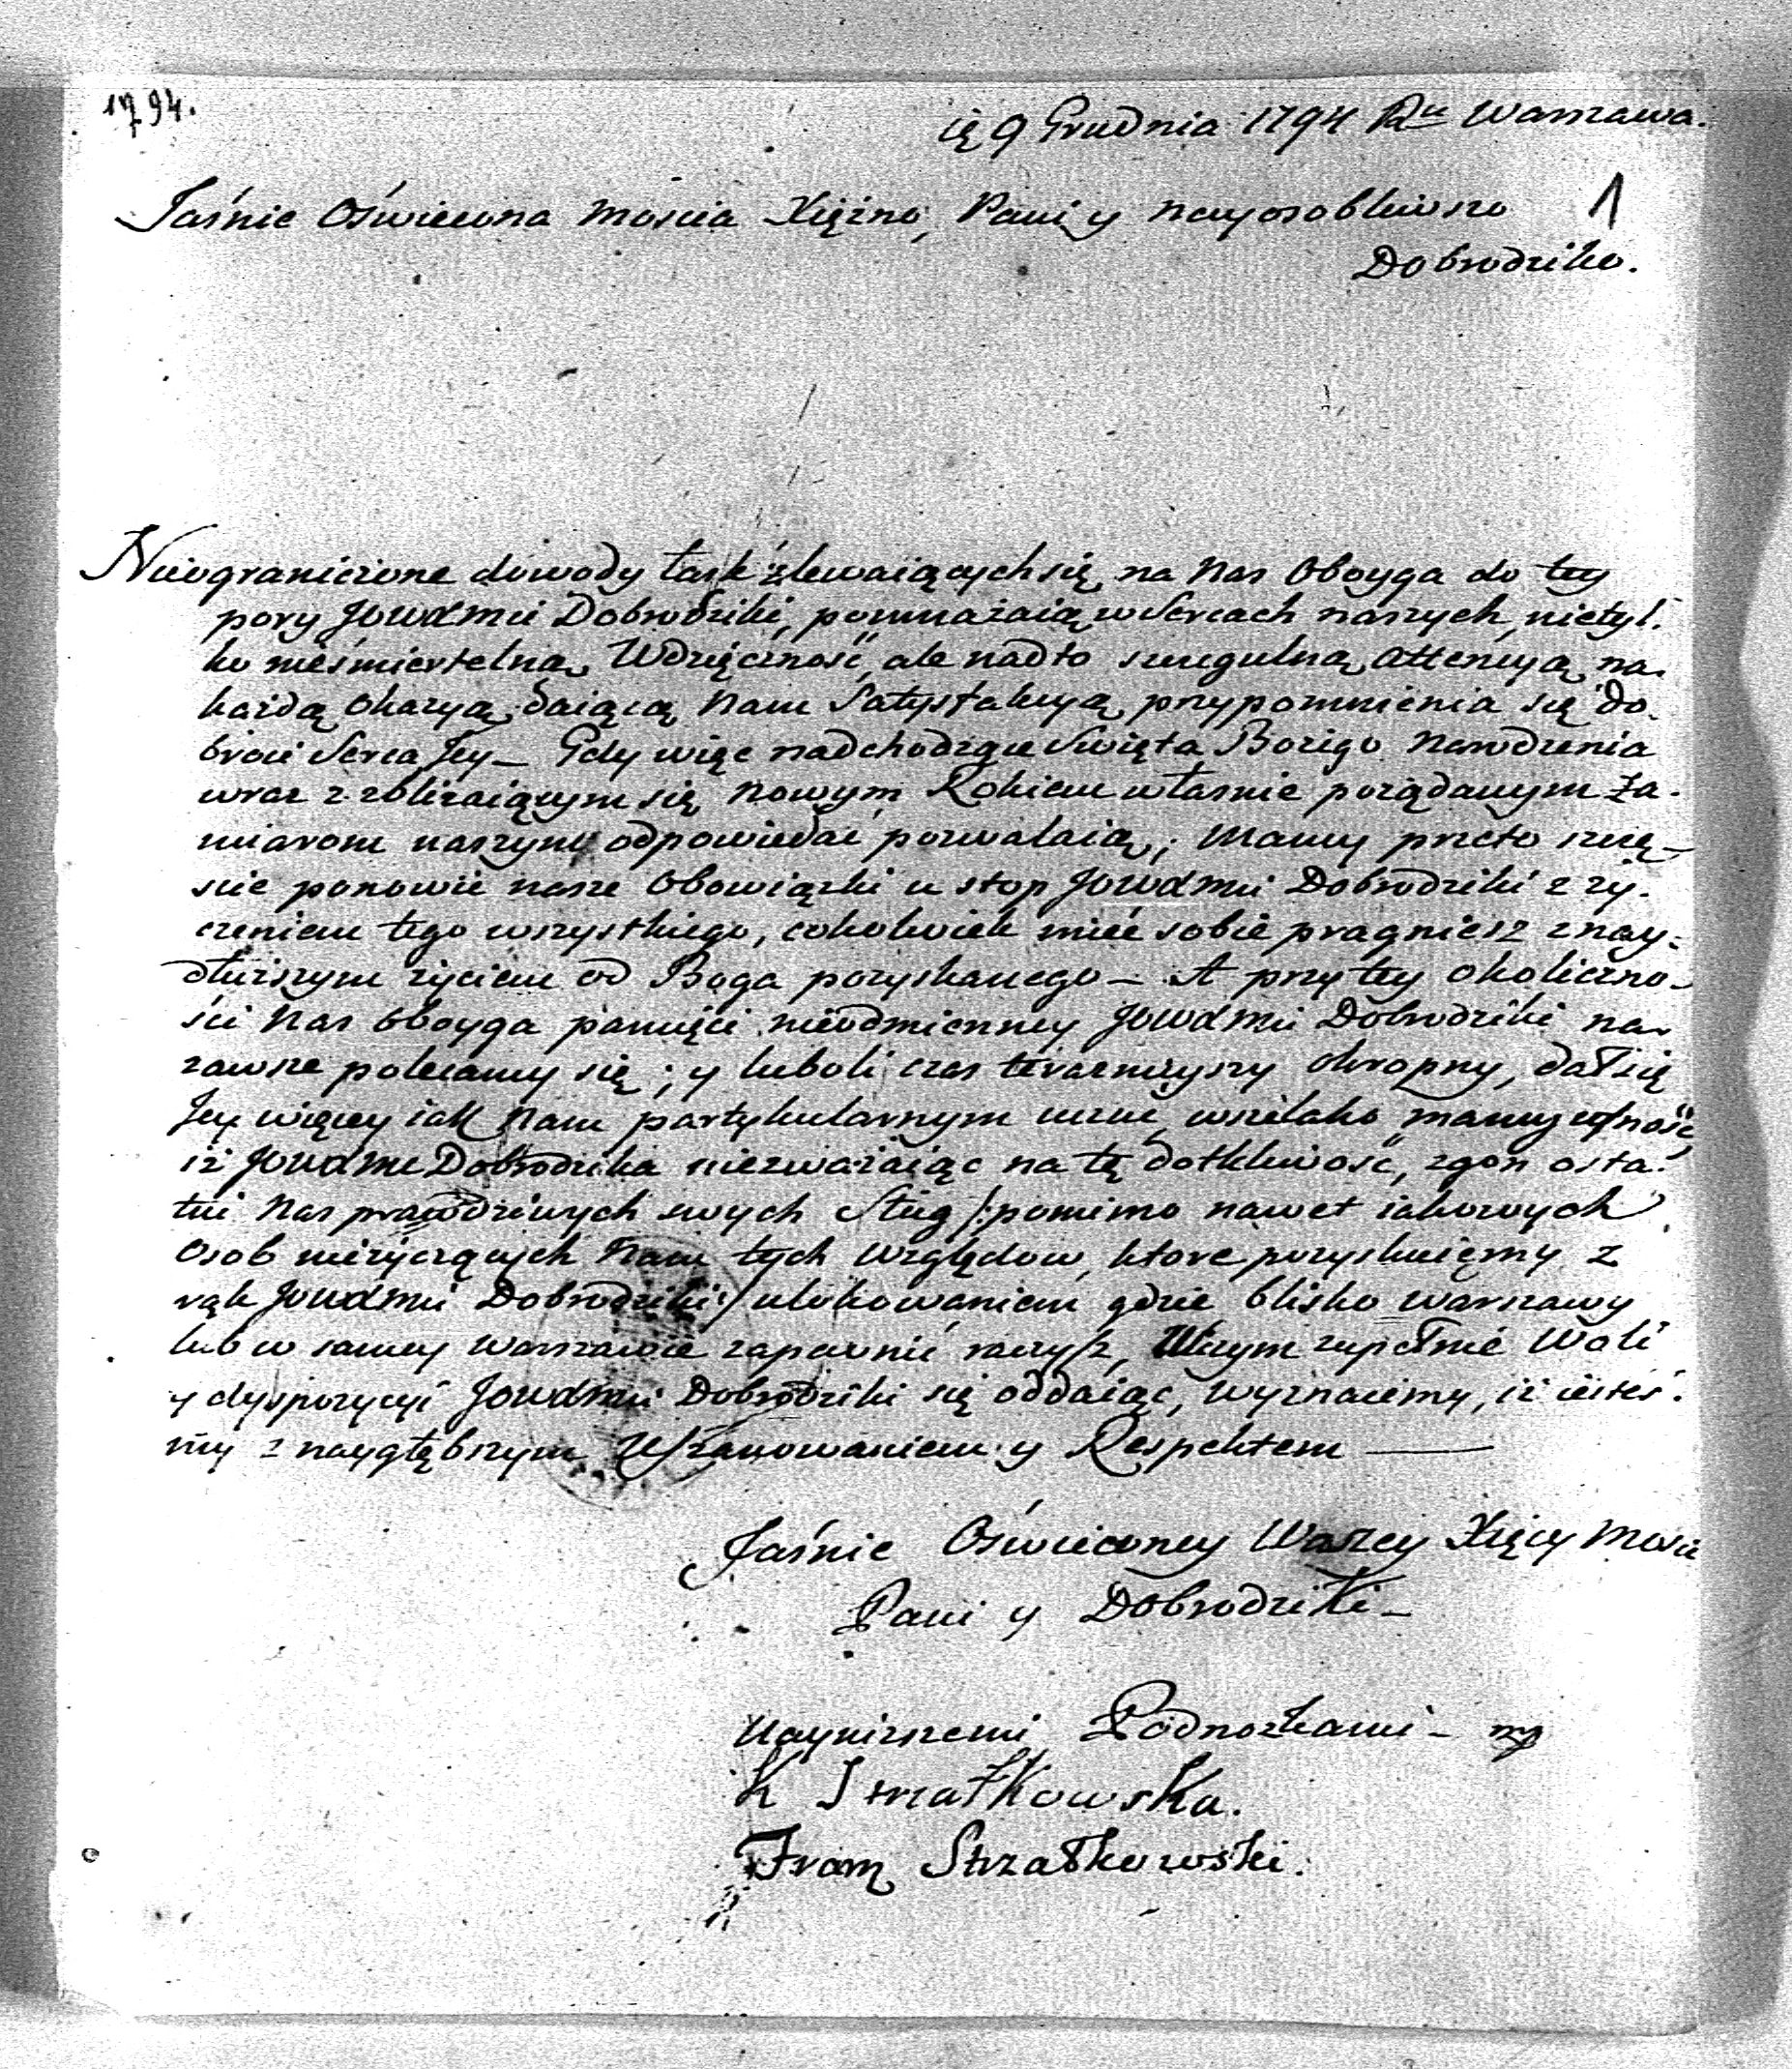 1794.
9 Grudnia 1794 Rku Warszawa.
1
Jaśnie Oświecona Mościa Xiężno, Pani y nayosobliwsza
Dobrodziko.
Nieograniczone dowody łask zlewaiących się na Nas Oboyga do tey
pory JOWXMci Dobrodziki, pomnażaią w Sercach naszych, nietyl-
ko nieśmiertelną Wdzięczność, ale nadto szczegulną Attencyą na
każdą Okazyą daiącą Nam Satysfakcyą przypomnienia się do-
broci Serca Jey – Gdy więc nadchodzące Swięta Bożego Narodzenia
wraz z zbliżaiącym się Nowym Rokiem własnie pożądanym Za-
miarom naszym odpowiedać pozwalaią; Mamy przeto szczę-
scie ponowić nasze Obowiązki u stop JOWXMci Dobrodziki z ży-
czeniem tego wszystkiego, cokolwiek mieć sobie pragniesz z nay-
dłuższym życiem od Boga pozyskanego – A przy tey okoliczno-
ści Nas Oboyga pamięci nieodmienney JOWXMci Dobrodziki na
zawsze polecamy się; y luboli czas teraznieyszy okropny, dał się
Jey więcey iak Nam partykularnym uczuć, wszelako mamy ufność
iż JOWXMć Dobrodzika niezważaiąc na tę dotkliwość, zgon osta-
tni Nas prawdziwych swych Sług /:pomimo nawet iakowych
Osob nieżyczących Nam tych względow, ktore pozyskuiemy z
rąk JOWXMci Dobrodziki:/ ulokowaniem gdzie blisko Warszawy
lub w samey Warszawie zapewnić raczysz, W czym zupełnie Woli
y dyspozycyi JOWXMci Dobrodziki się oddaiąc, wyznaiemy, iż iesteś-
my z naygłębszym Uszanowaniem y Respektem –
Jaśnie Oświeconey Waszey Xięcey Mości
Pani y Dobrodziki –
Nayniższemi Podnożkami – mp
K Strzałkowska.
Franc Strzałkowski.